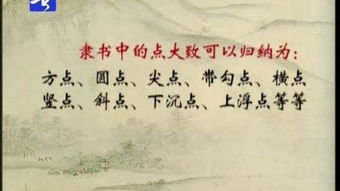 隶书中的点大致可以归纳为：
方点、圆点、尖点、带勾点、横点
竖点、斜点、下沉点、上浮点等等